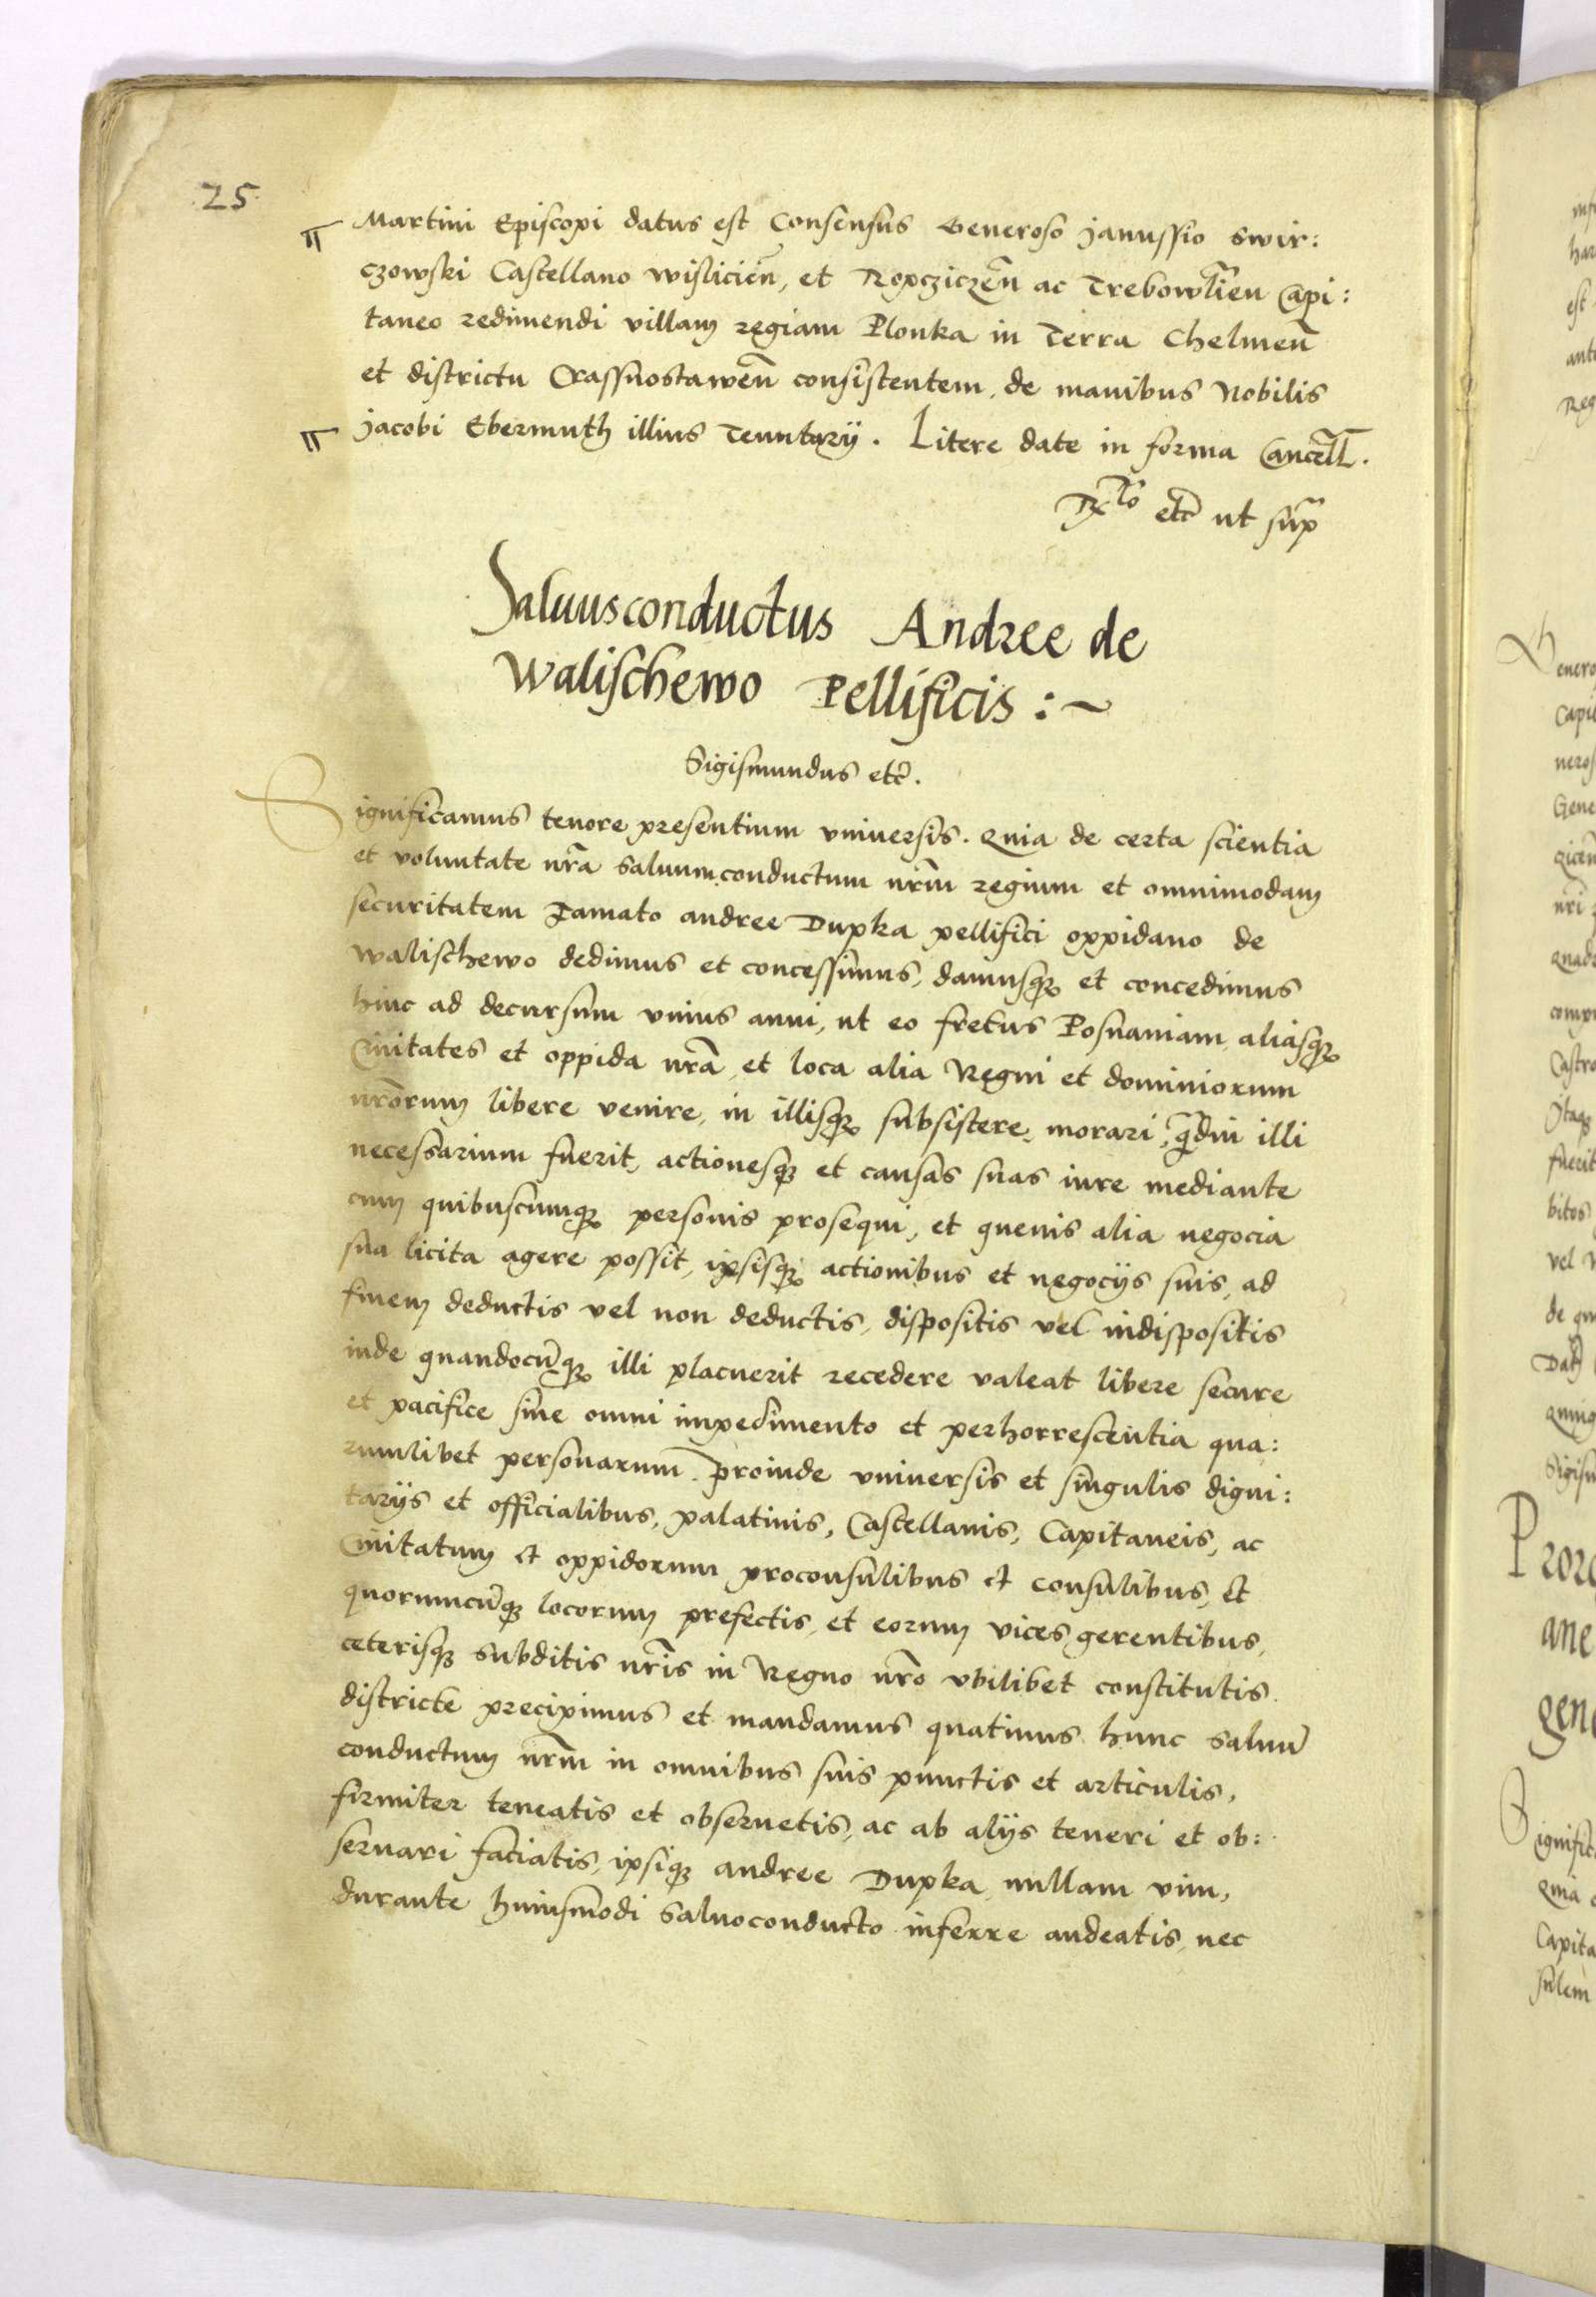 25
Martini Episcopi datus est Consensus Generoso Janussio Swir:
czowski Castellano wislicien̄, et Ropcziczen̄ ac Trebowlien̄ Capi:
taneo redimendi villam regiam Plonka in Terra Chelmen̄
et districtu Crassnostawen̄ consistentem, de manibus Nobilis
Jacobi Ebermuth illius Tenutarij. Litere date in forma Cancell.
Rlo etc ut supra
Saluusconductus Andree de
Walischewo Pellificis :~
Sigismundus etc.
Significamus tenore presentium vniuersis. Quia de certa scientia
et voluntate nr̄a saluumconductum nrm̄ regium et omnimodam
securitatem Famato andree Dupka pellifici oppidano de
walischewo dedimus et concessimus, damusq; et concedimus
hinc ad decursum vnius anni, ut eo fretus Posnaniam, aliasq;
Ciuitates et oppida nrā, et loca alia Regni et dominiorum
nr̄orum libere venire, in illisq; subsistere, morari, q̄diu illi
necessarium fuerit, actionesq; et causas suas iure mediante
cum quibuscumq; personis prosequi, et queuis alia negocia
sua licita agere possit, ipsisq; actionibus et negocijs suis, ad
finem deductis vel non deductis, dispositis vel indispositis
inde quandocūq; illi placuerit recedere valeat libere secure
et pacifice sine omni impedimento et perhorrescentia qua:
rumlibet personarum. proinde vniuersis et singulis digni:
tarijs et officialibus, palatinis, Castellanis, Capitaneis, ac
Ciuitatum et oppidorum proconsulibus et consulibus, et
quorumcūq; locorum prefectis, et eorum vices gerentibus,
ceterisq; subditis nr̄is in Regno nr̄o vbilibet constitutis.
districte precipimus et mandamus quatinus hunc saluū
conductum nrm̄ in omnibus suis punctis et articulis,
firmiter teneatis et obseruetis, ac ab alijs teneri et ob:
seruari faciatis, ipsiq; andree Dupka nullam vim,
durante huiusmodi saluoconducto inferre audeatis, nec